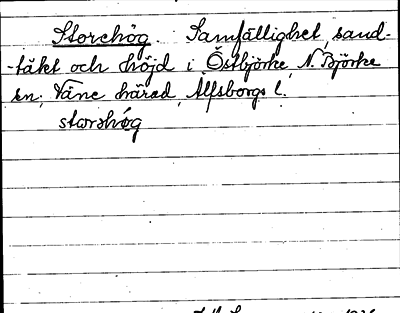 Storehög. Samfällighet, sand-
-täkt och höjd i Östbjörke, N. Björke
sn, Väne härad, Älfsborgs l.
storshög